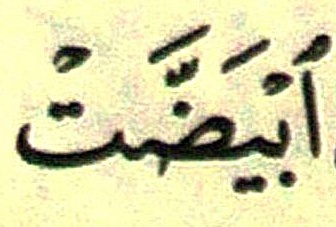 اُبْيَضَّتْ